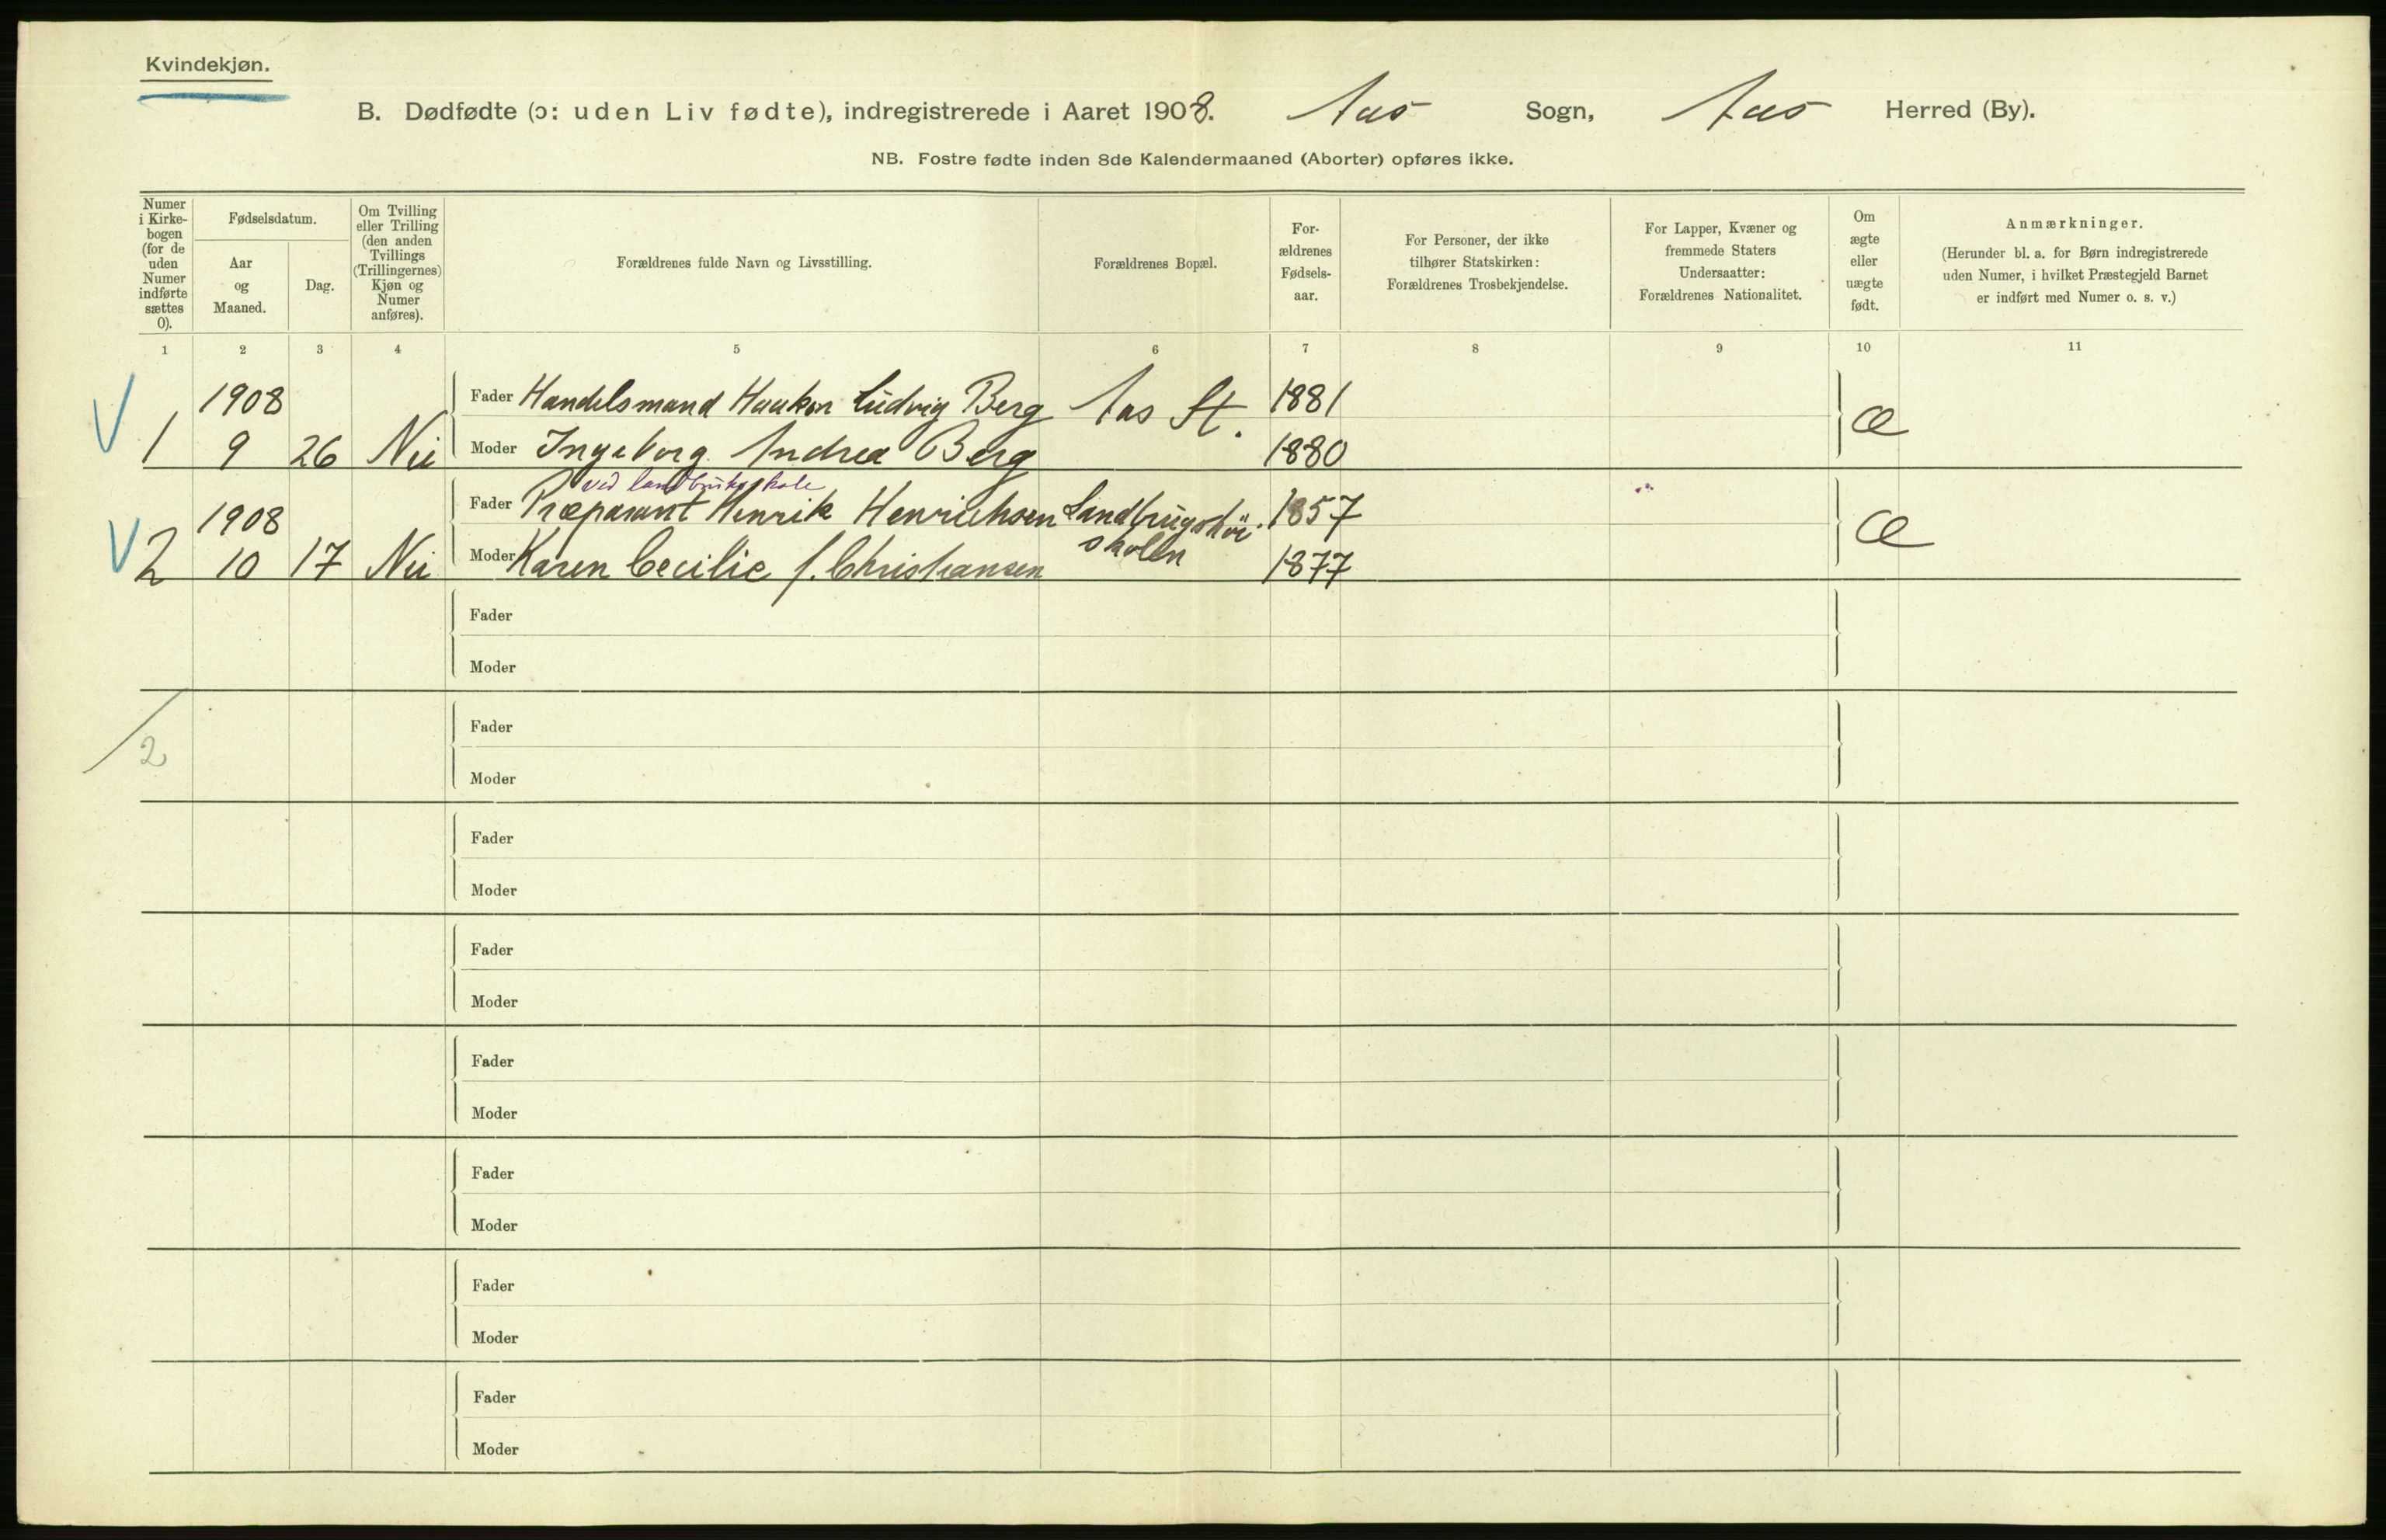 Kvindekjøn.
B. Dødfødte (ɔ: uden Liv fødte), indregistrerede i Aaret 1908. Aas Sogn, Aas Herred (By).
NB. Fostre fødte inden 8de Kalendermaaned (Aborter) opføres ikke.
Numer i Kirke-bogen (for de uden Numer indførte sættes 0).
Fødselsdatum.
Aar og Maaned.
Dag.
Om Tvilling eller Trilling (den anden Tvillings (Trillingernes) Kjøn og Numer anføres).
Forældrenes fulde Navn og Livsstilling.
Forældrenes Bopæl.
For-ældrenes Fødsels-aar.
For Personer, der ikke tilhører Statskirken: Forældrenes Trosbekjendelse.
For Lapper, Kvæner og fremmede Staters Undersaatter: Forældrenes Nationalitet.
Om ægte eller uægte født.
Anmærkninger.
(Herunder bl. a. for Børn indregistrerede uden Numer, i hvilket Præstegjeld Barnet er indført med Numer o. s. v.)
1 2 3 4 5 6 7 8 9 10 11
1908 Fader Handelsmand Haakon Ludvig Berg Aas St. 1881
1 9 26 Nei Moder Ingeborg Andrea Berg 1880 Æ
ved landbruksskole
1908 Fader Præparant Henrik Henrichsen Landbrugshøi- 1857
skolen
2 10 17 Nei Moder Karen Cecilie f. Christiansen 1877 Æ
Fader
Moder
2
Fader
Moder
Fader
Moder
Fader
Moder
Fader
Moder
Fader
Moder
Fader
Moder
Fader
Moder